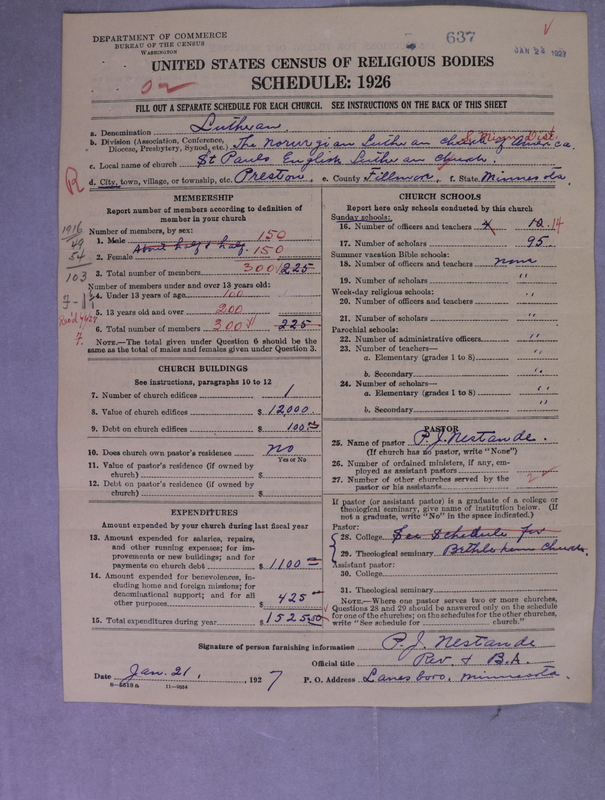 DEPARTMENT OF COMMERCE
BUREAU OF THE CENSUS
WASHINGTON
637
JAN 24 1927
UNITED STATES CENSUS OF RELIGIOUS BODIES
SCHEDULE: 1926
FILL OUT A SEPARATE SCHEDULE FOR EACH CHURCH. SEE INSTRUCTIONS ON THE BACK OF THIS SHEET
a. Denomination Lutheran
b. Division (Association, Conference, Diocese, Presbytery, Synod, etc.) The Norwegian Lutheran church of America. S. Minn Dist.
c. Local name of church St Pauls English Lutheran church.
d. City, town, village, or township, etc. Preston, e. County Fillmore, f. State Minnesota.
R
MEMBERSHIP
Report number of members according to definition of
member in your church
Number of members, by sex:
1. Male 150
About half & half.
2. Female 150
3. Total number of members 300 225
Number of members under and over 13 years old:
4. Under 13 years of age 100
5. 13 years old and over 200
6. Total number of members 300 225
NOTE.—The total given under Question 6 should be the
same as the total of males and females given under Question 3.
1916
49
54
103
7-11
CHURCH BUILDINGS
See instructions, paragraphs 10 to 12
7. Number of church edifices 1
8. Value of church edifices $ 12,000.
9. Debt on church edifices $ 100.
10. Does church own pastor's residence? no
Yes or No
11. Value of pastor's residence (if owned by
church) $
12. Debt on pastor's residence (if owned by
church) $
EXPENDITURES
Amount expended by your church during last fiscal year
13. Amount expended for salaries, repairs,
and other running expenses; for im-
provements or new buildings; and for
payments on church debt $ 1100
14. Amount expended for benevolences, in-
cluding home and foreign missions; for
denominational support; and for all
other purposes $ 425
15. Total expenditures during year $ 1525.00
CHURCH SCHOOLS
Report here only schools conducted by this church
Sunday schools:
16. Number of officers and teachers 12 14
17. Number of scholars 95
Summer vacation Bible schools:
18. Number of officers and teachers none
19. Number of scholars "
Week-day religious schools:
20. Number of officers and teachers "
21. Number of scholars "
Parochial schools:
22. Number of administrative officers "
23. Number of teachers—
a. Elementary (grades 1 to 8) "
b. Secondary "
24. Number of scholars—
a. Elementary (grades 1 to 8) "
b. Secondary "
PASTOR
25. Name of pastor P. J. Nestande.
(If church has no pastor, write "None")
26. Number of ordained ministers, if any, em-
ployed as assistant pastors
27. Number of other churches served by the
pastor or his assistants 2
If pastor (or assistant pastor) is a graduate of a college or
theological seminary, give name of institution below. (If
not a graduate, write "No" in the space indicated.)
Pastor:
28. College See Schedule for
29. Theological seminary Bethlehem church.
Assistant pastor:
30. College
31. Theological seminary
NOTE.—Where one pastor serves two or more churches,
Questions 28 and 29 should be answered only on the schedule
for one of the churches; on the schedules for the other churches,
write "See schedule for church."
Signature of person furnishing information P. J. Nestande
Official title Rev. & B.A.
Date Jan. 21, 1927 P. O. Address Lanesboro, Minnesota.
8-5518a 11-9554